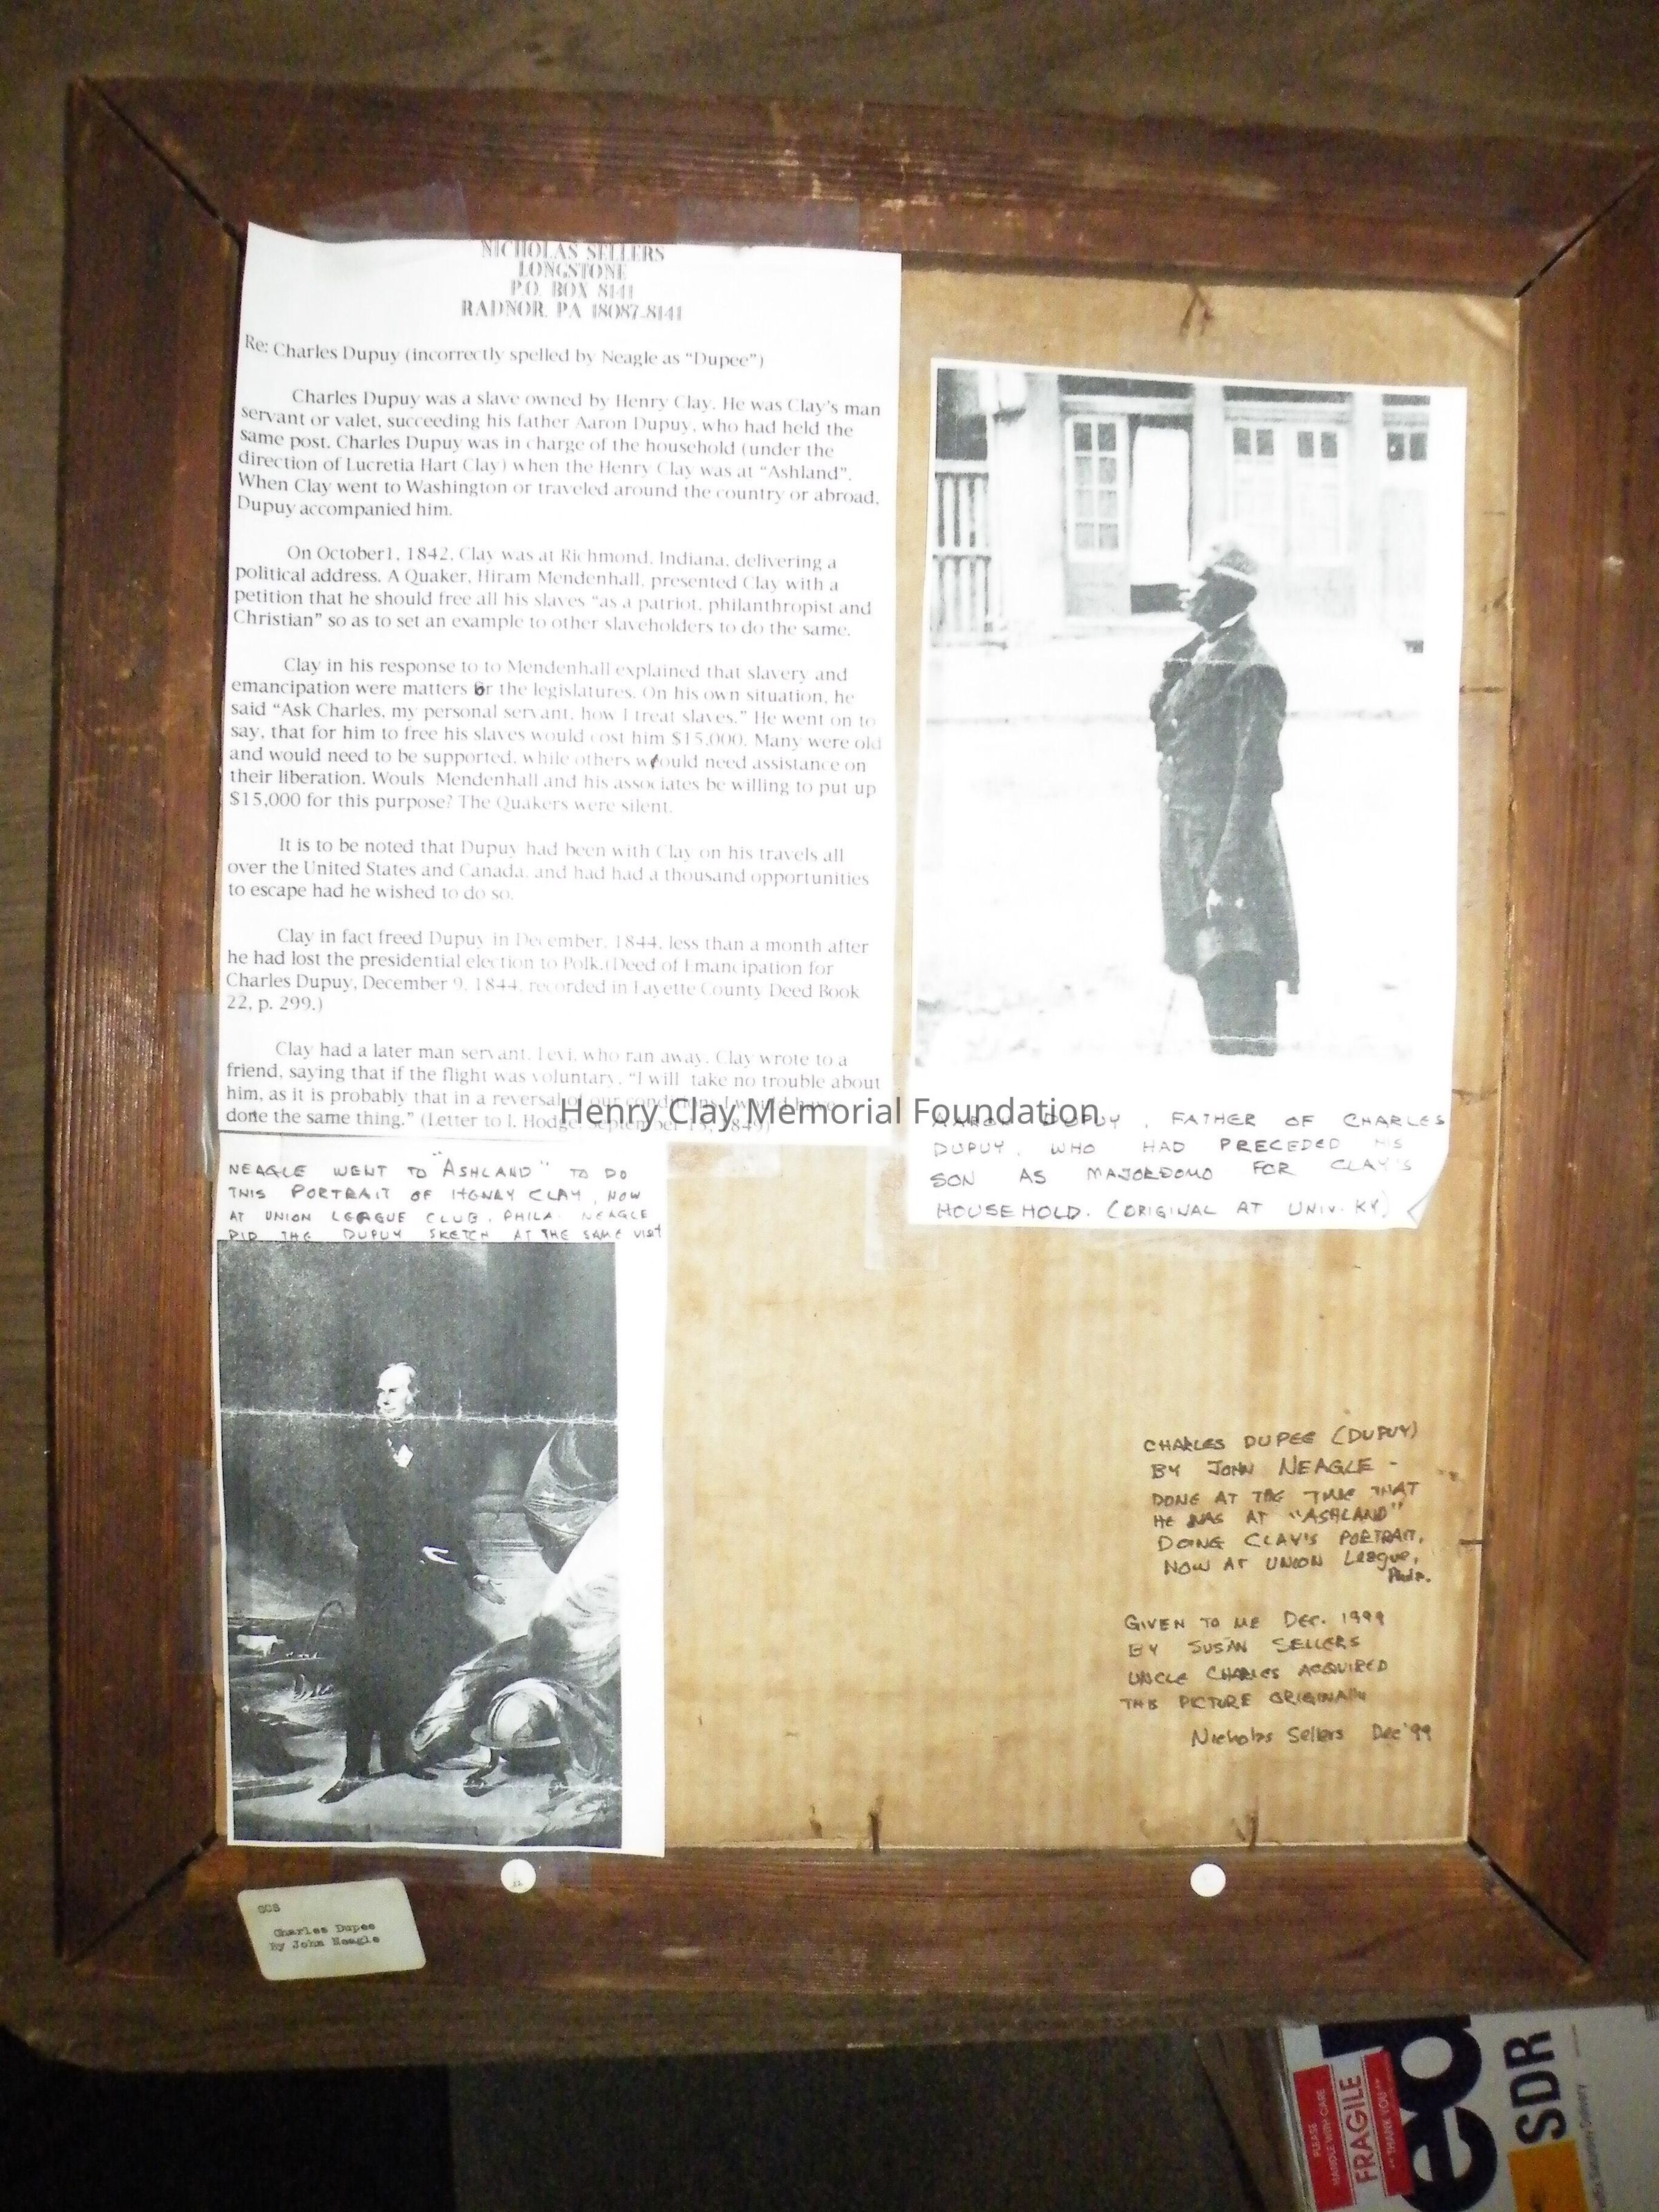 NICHOLAS SELLERS
LONGSTONE
P.O. BOX 8141
RADNOR, PA 18087-8141
Re: Charles Dupuy (incorrectly spelled by Neagle as “Dupee”)
Charles Dupuy was a slave owned by Henry Clay. He was Clay's man
servant or valet, succeeding his father Aaron Dupuy, who had held the
same post. Charles Dupuy was in charge of the household (under the
direction of Lucretia Hart Clay) when the Henry Clay was at “Ashland”.
When Clay went to Washington or traveled around the country or abroad,
Dupuy accompanied him.
On October1, 1842, Clay was at Richmond, Indiana, delivering a
political address. A Quaker, Hiram Mendenhall, presented Clay with a
petition that he should free all his slaves “as a patriot, philanthropist and
Christian” so as to set an example to other slaveholders to do the same.
Clay in his response to to Mendenhall explained that slavery and
emancipation were matters for the legislatures. On his own situation, he
said “Ask Charles, my personal servant, how I treat slaves.” He went on to
say, that for him to free his slaves would cost him $15,000. Many were old
and would need to be supported, while others would need assistance on
their liberation. Wouls Mendenhall and his associates be willing to put up
$15,000 for this purpose? The Quakers were silent.
It is to be noted that Dupuy had been with Clay on his travels all
over the United States and Canada, and had had a thousand opportunities
to escape had he wished to do so.
Clay in fact freed Dupuy in December, 1844, less than a month after
he had lost the presidential election to Polk.(Deed of Emancipation for
Charles Dupuy, December 9, 1844, recorded in Fayette County Deed Book
22, p. 299.)
Clay had a later man servant, Levi, who ran away. Clay wrote to a
friend, saying that if the flight was voluntary, “I will take no trouble about
him, as it is probably that in a reversal of our conditions I would have
done the same thing.” (Letter to J. Hodge, September 15, 1849)
Henry Clay Memorial Foundation
AARON DUPUY, FATHER OF CHARLES
DUPUY, WHO HAD PRECEDED HIS
SON AS MAJORDOMO FOR CLAY'S
HOUSEHOLD. (ORIGINAL AT UNIV. KY)
NEAGLE WENT TO "ASHLAND" TO DO
THIS PORTRAIT OF HENRY CLAY, NOW
AT UNION LEAGUE CLUB, PHILA. NEAGLE
DID THE DUPUY SKETCH AT THE SAME VISIT
CHARLES DUPEE (DUPUY)
BY JOHN NEAGLE -
DONE AT THE TIME THAT
HE WAS AT "ASHLAND"
DOING CLAY'S PORTRAIT,
NOW AT UNION League,
Phila.
GIVEN TO ME DEC. 1999
BY SUSAN SELLERS
UNCLE CHARLES ACQUIRED
THIS PICTURE ORIGINALLY
Nicholas Sellers Dec '99
GCS
Charles Dupee
By John Neagle
ed
PLEASE
HANDLE WITH CARE
FRAGILE
THANK YOU
SDR
Saturday Delivery